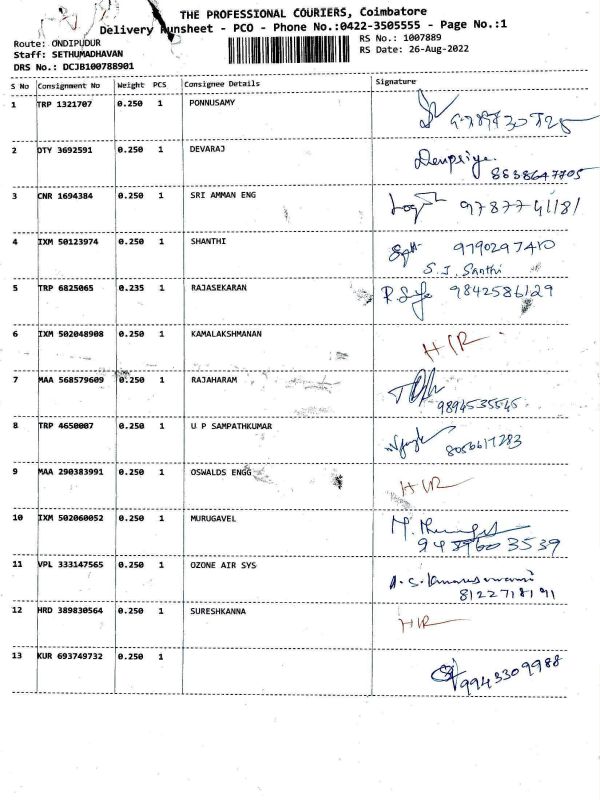 THE PROFESSIONAL COURIERS, Coimbatore
Delivery Runsheet - PCO - Phone No.:0422-3505555 - Page No.:1
Route: ONDIPUDUR
Staff: SETHUMADHAVAN
DRS No.: DCJB100788901
RS No.: 1007889
RS Date: 26-Aug-2022
S No Consignment No Weight PCS Consignee Details Signature
1 TRP 1321707 0.250 1 PONNUSAMY
2 DTY 3692591 0.250 1 DEVARAJ
8838647705
3 CNR 1694384 0.250 1 SRI AMMAN ENG 9787741181
4 IXM 50123974 0.250 1 SHANTHI 9790297410
S.J. Santhi
5 TRP 6825065 0.235 1 RAJASEKARAN 9842586129
6 IXM 502048908 0.250 1 KAMALAKSHMANAN H/R
7 MAA 568579609 0.250 1 RAJAHARAM
9894535545
8 TRP 4650007 0.250 1 U P SAMPATHKUMAR
8056617283
9 MAA 290383991 0.250 1 OSWALDS ENGG H/R
10 IXM 502060052 0.250 1 MURUGAVEL
9489603539
11 VPL 333147565 0.250 1 OZONE AIR SYS
8122718191
12 HRD 389830564 0.250 1 SURESHKANNA H/R
13 KUR 693749732 0.250 1 9943309988